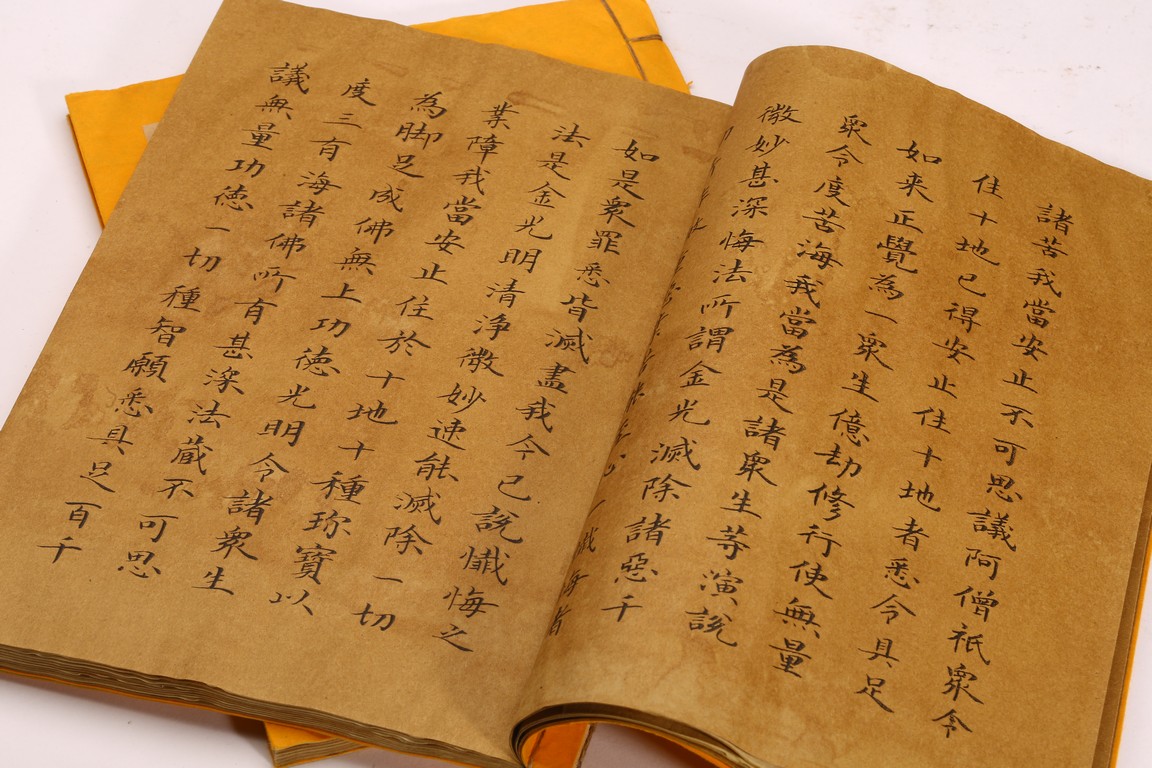 諸苦我當安止不可思議阿僧祇衆令
住十地已得安止住十地者悉令具足
如来正覺為一衆生億劫修行使無量
衆令度苦海我當為是諸衆生等演說
微妙甚深悔法所謂金光滅除諸惡千
懺悔者
如是衆罪悉皆滅盡我今已說懺悔之
法是金光明清淨微妙速能滅除一切
業障我當安止住於十地十種珎寶以
為脚足成佛無上功徳光明令諸衆生
度三有海諸佛所有甚深法蔵不可思
議無量功徳一切種智願悉具足百千